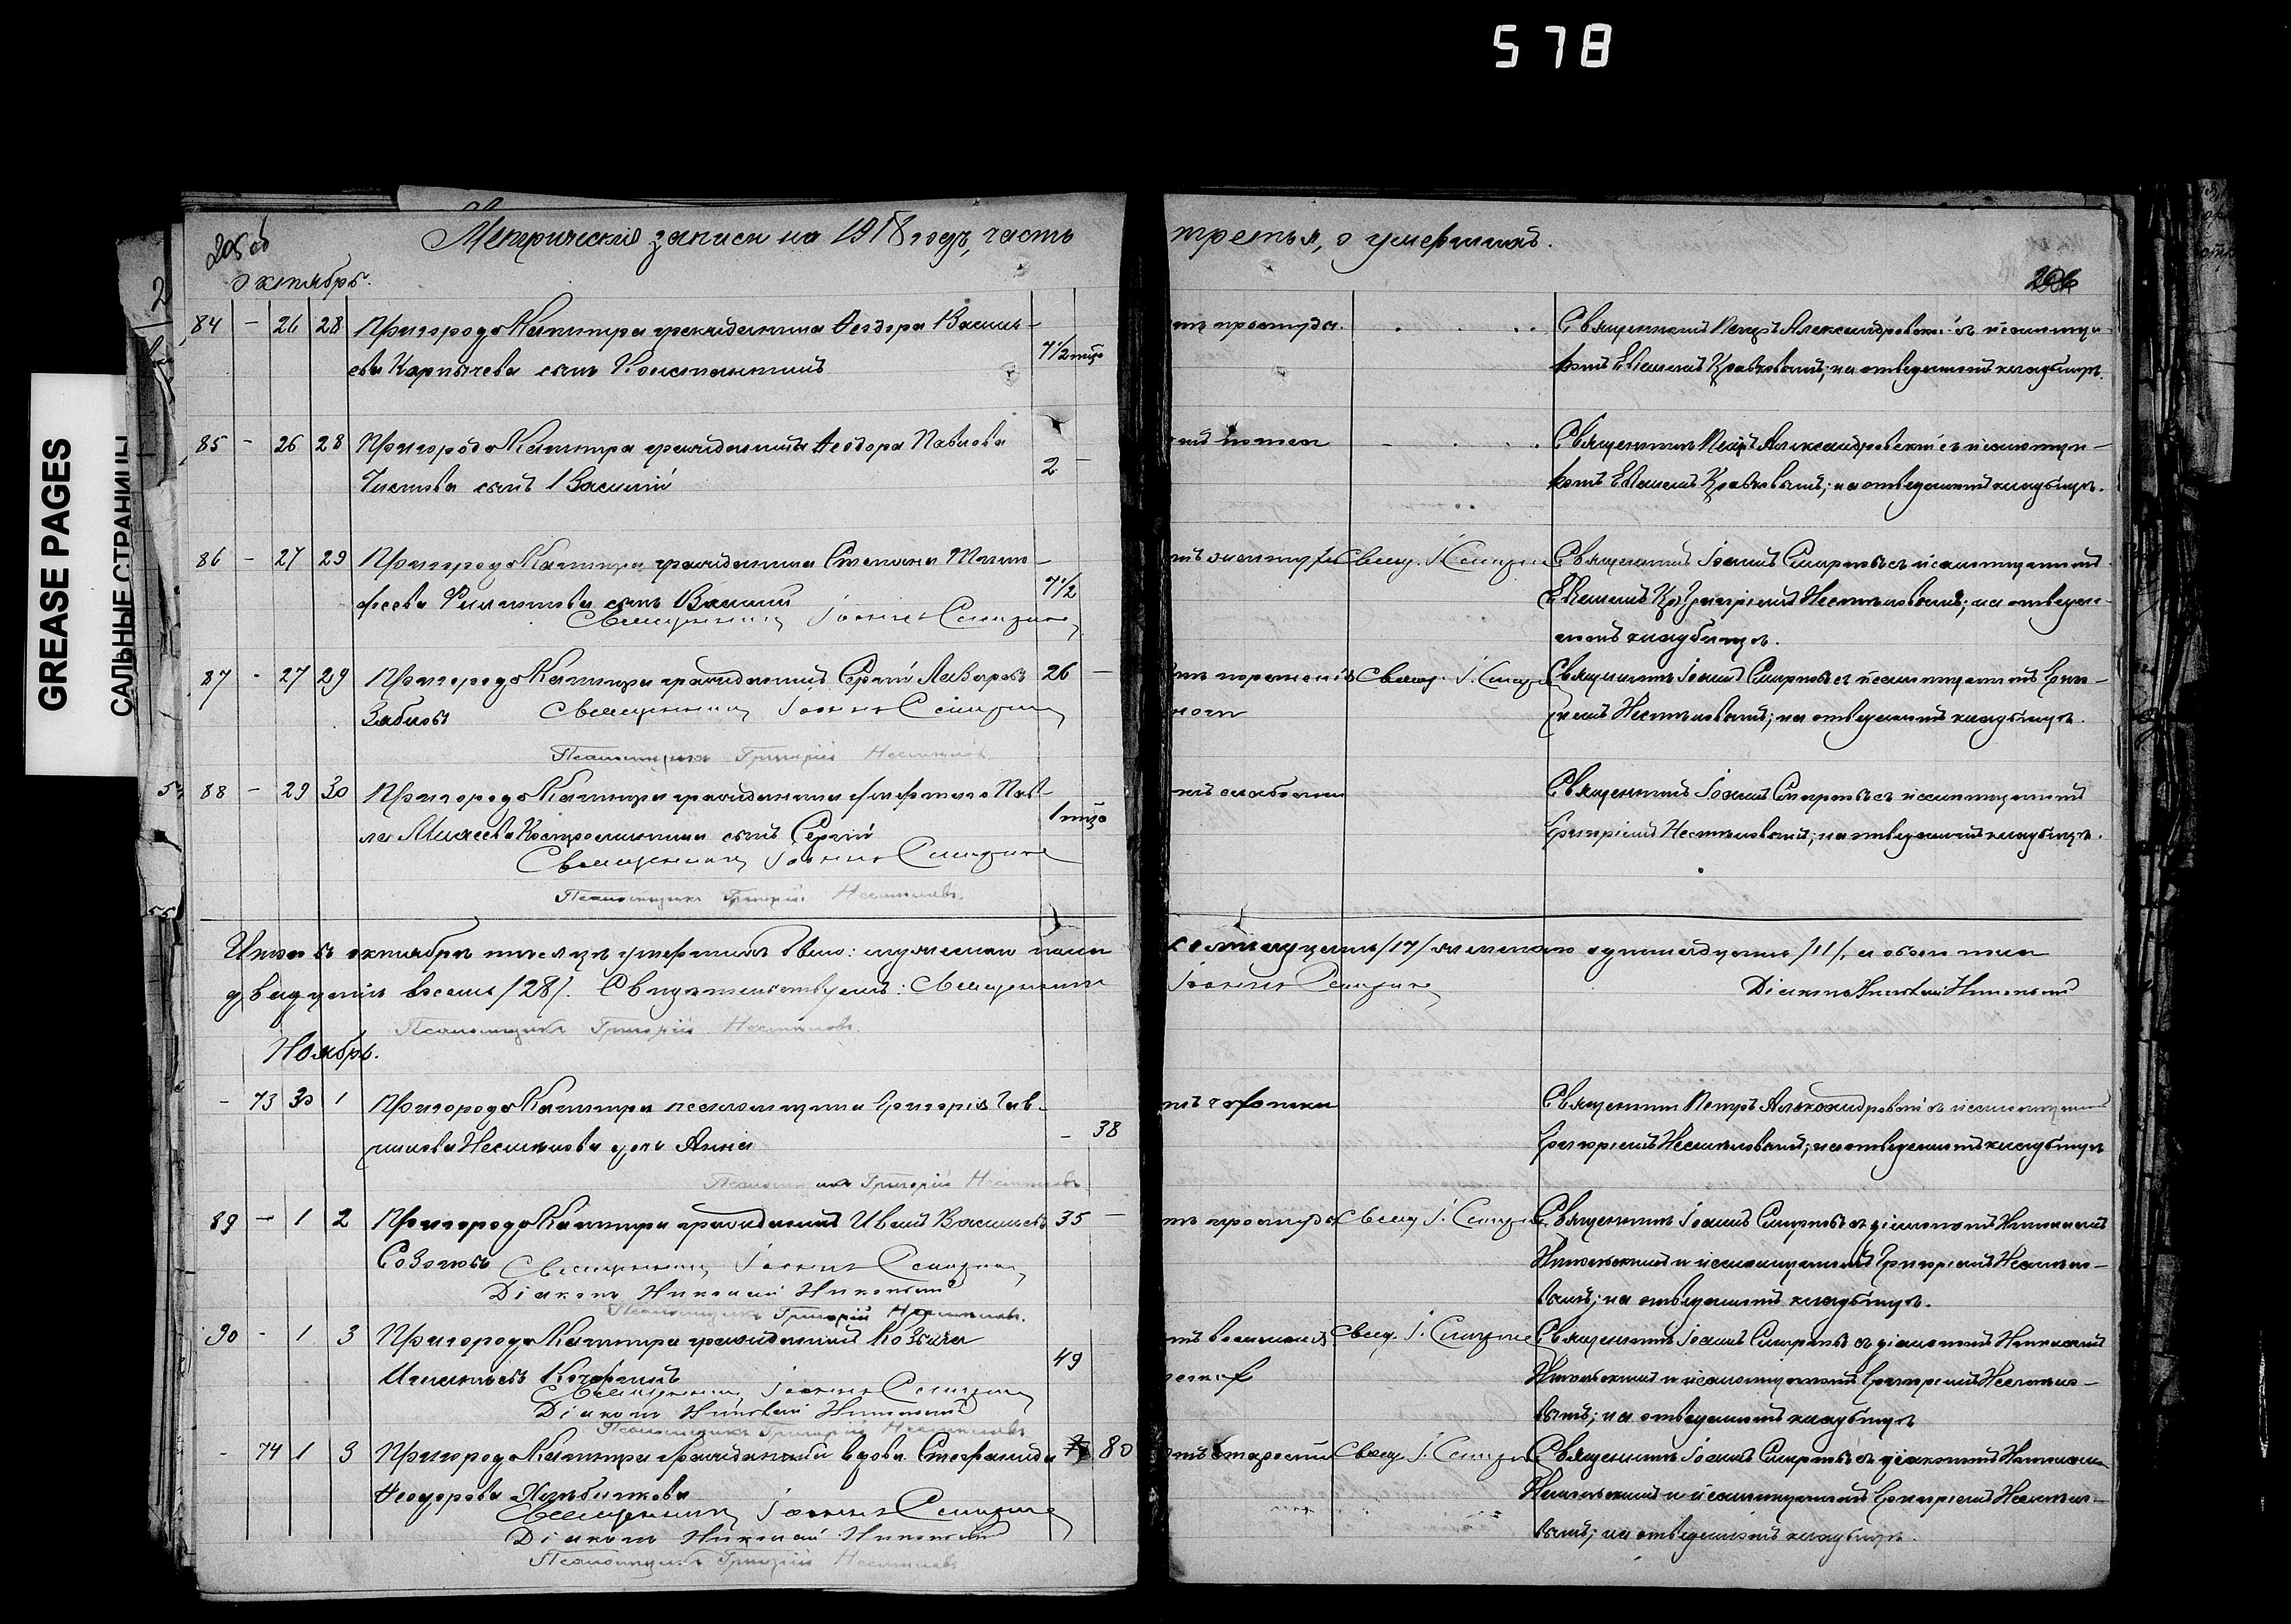 578
GREASE PAGES
САЛЬНЫЕ СТРАНИЦЫ
205 об
Метрическiя записи на 1918 годъ, часть третья, о умершихъ.
206
Октябрь.
84 - 26 28 Пригорода Каштира гражданина Ѳеодора Василь-
ева Карпычева сынъ Константинъ 4 1/2 мѣс
отъ простуды.
Священникъ Петръ Александровскiй съ псаломщи-
комъ Евгенiемъ; на отведенномъ кладбищѣ.
85 - 26 28 Пригорода Каштира гражданина Ѳеодора Павлова
Чистова сынъ Василiй 2 -
Священникъ Петръ Александровскiй съ псаломщи-
комъ Евгенiемъ; на отведенномъ кладбищѣ.
86 - 27 29 Пригорода Каштира гражданина Степана Тимо-
феева сынъ Василiй 4 1/2
Священникъ Iоаннъ Смирновъ
Свящ. I. Смирновъ
Священникъ Iоаннъ Смирновъ съ псаломщикомъ
Григорiемъ Несмѣловымъ; на отведен-
номъ кладбищѣ.
87 - 27 29 Пригорода Каштира гражданинъ Сергiй Лазаревъ 26 -
Зыбновъ Священникъ Iоаннъ Смирновъ
Псаломщикъ Григорiй Несмѣловъ
отъ пораненiя
ноги
Свящ. I. Смирновъ
Священникъ Iоаннъ Смирновъ съ псаломщикомъ Григо-
рiемъ Несмѣловымъ; на отведенномъ кладбищѣ.
88 - 29 30 Пригорода Каштира гражданина умершаго Пав-
ла Михеева сынъ Сергiй 1 мѣс
Священникъ Iоаннъ Смирновъ
Псаломщикъ Григорiй Несмѣловъ.
отъ слабости
Священникъ Iоаннъ Смирновъ съ псаломщикомъ
Григорiемъ Несмѣловымъ; на отведенномъ кладбищѣ.
Итого въ октябрѣ мѣсяцѣ умершихъ было: мужескаго пола семнадцать /17/ женскаго одиннадцать /11/, а обоего пола
двадцать восемь /28/. Свидѣтельствуемъ: Священникъ Iоаннъ Смирновъ Дiаконъ Николай Никольскiй
Псаломщикъ Григорiй Несмѣловъ.
Ноябрь.
- 73 30 1 Пригорода Каштира псаломщика Григорiя Гав-
рилова Несмѣлова дочь Анна - 38
Псаломщикъ Григорiй Несмѣловъ
отъ горячки
Священникъ Петръ Александровскiй съ псаломщикомъ
Григорiемъ Несмѣловымъ; на отведенномъ кладбищѣ
89 - 1 2 Пригорода Каштира гражданинъ Иванъ Васильевъ 35 -
Созоновъ Священникъ Iоаннъ Смирновъ
Дiаконъ Николай Никольскiй
Псаломщикъ Григорiй Несмѣловъ.
отъ простуды
Свящ. I. Смирновъ
Священникъ Iоаннъ Смирновъ съ дiакономъ Николаемъ
Никольскимъ и псаломщикомъ Григорiемъ Несмѣло-
вымъ; на отведенномъ кладбищѣ.
90 - 1 3 Пригорода Каштира гражданинъ Козьма
Игнатьевъ 49
Священникъ Iоаннъ Смирновъ
Дiаконъ Николай Никольскiй
Псаломщикъ Григорiй Несмѣловъ
отъ воспаленiя
Свящ. I. Смирновъ
Священникъ Iоаннъ Смирновъ съ дiакономъ Николаемъ
Никольскимъ и псаломщикомъ Григорiемъ Несмѣло-
вымъ; на отведенномъ кладбищѣ
- 74 1 3 Пригорода Каштира гражданина вдова Стефанида 80
Ѳеодорова
Священникъ Iоаннъ Смирновъ
Дiаконъ Николай Никольскiй
Псаломщикъ Григорiй Несмѣловъ
отъ старости
Свящ. I. Смирновъ
Священникъ Iоаннъ Смирновъ съ дiакономъ Николаемъ
Никольскимъ и псаломщикомъ Григорiемъ Несмѣло-
вымъ; на отведенномъ кладбищѣ.